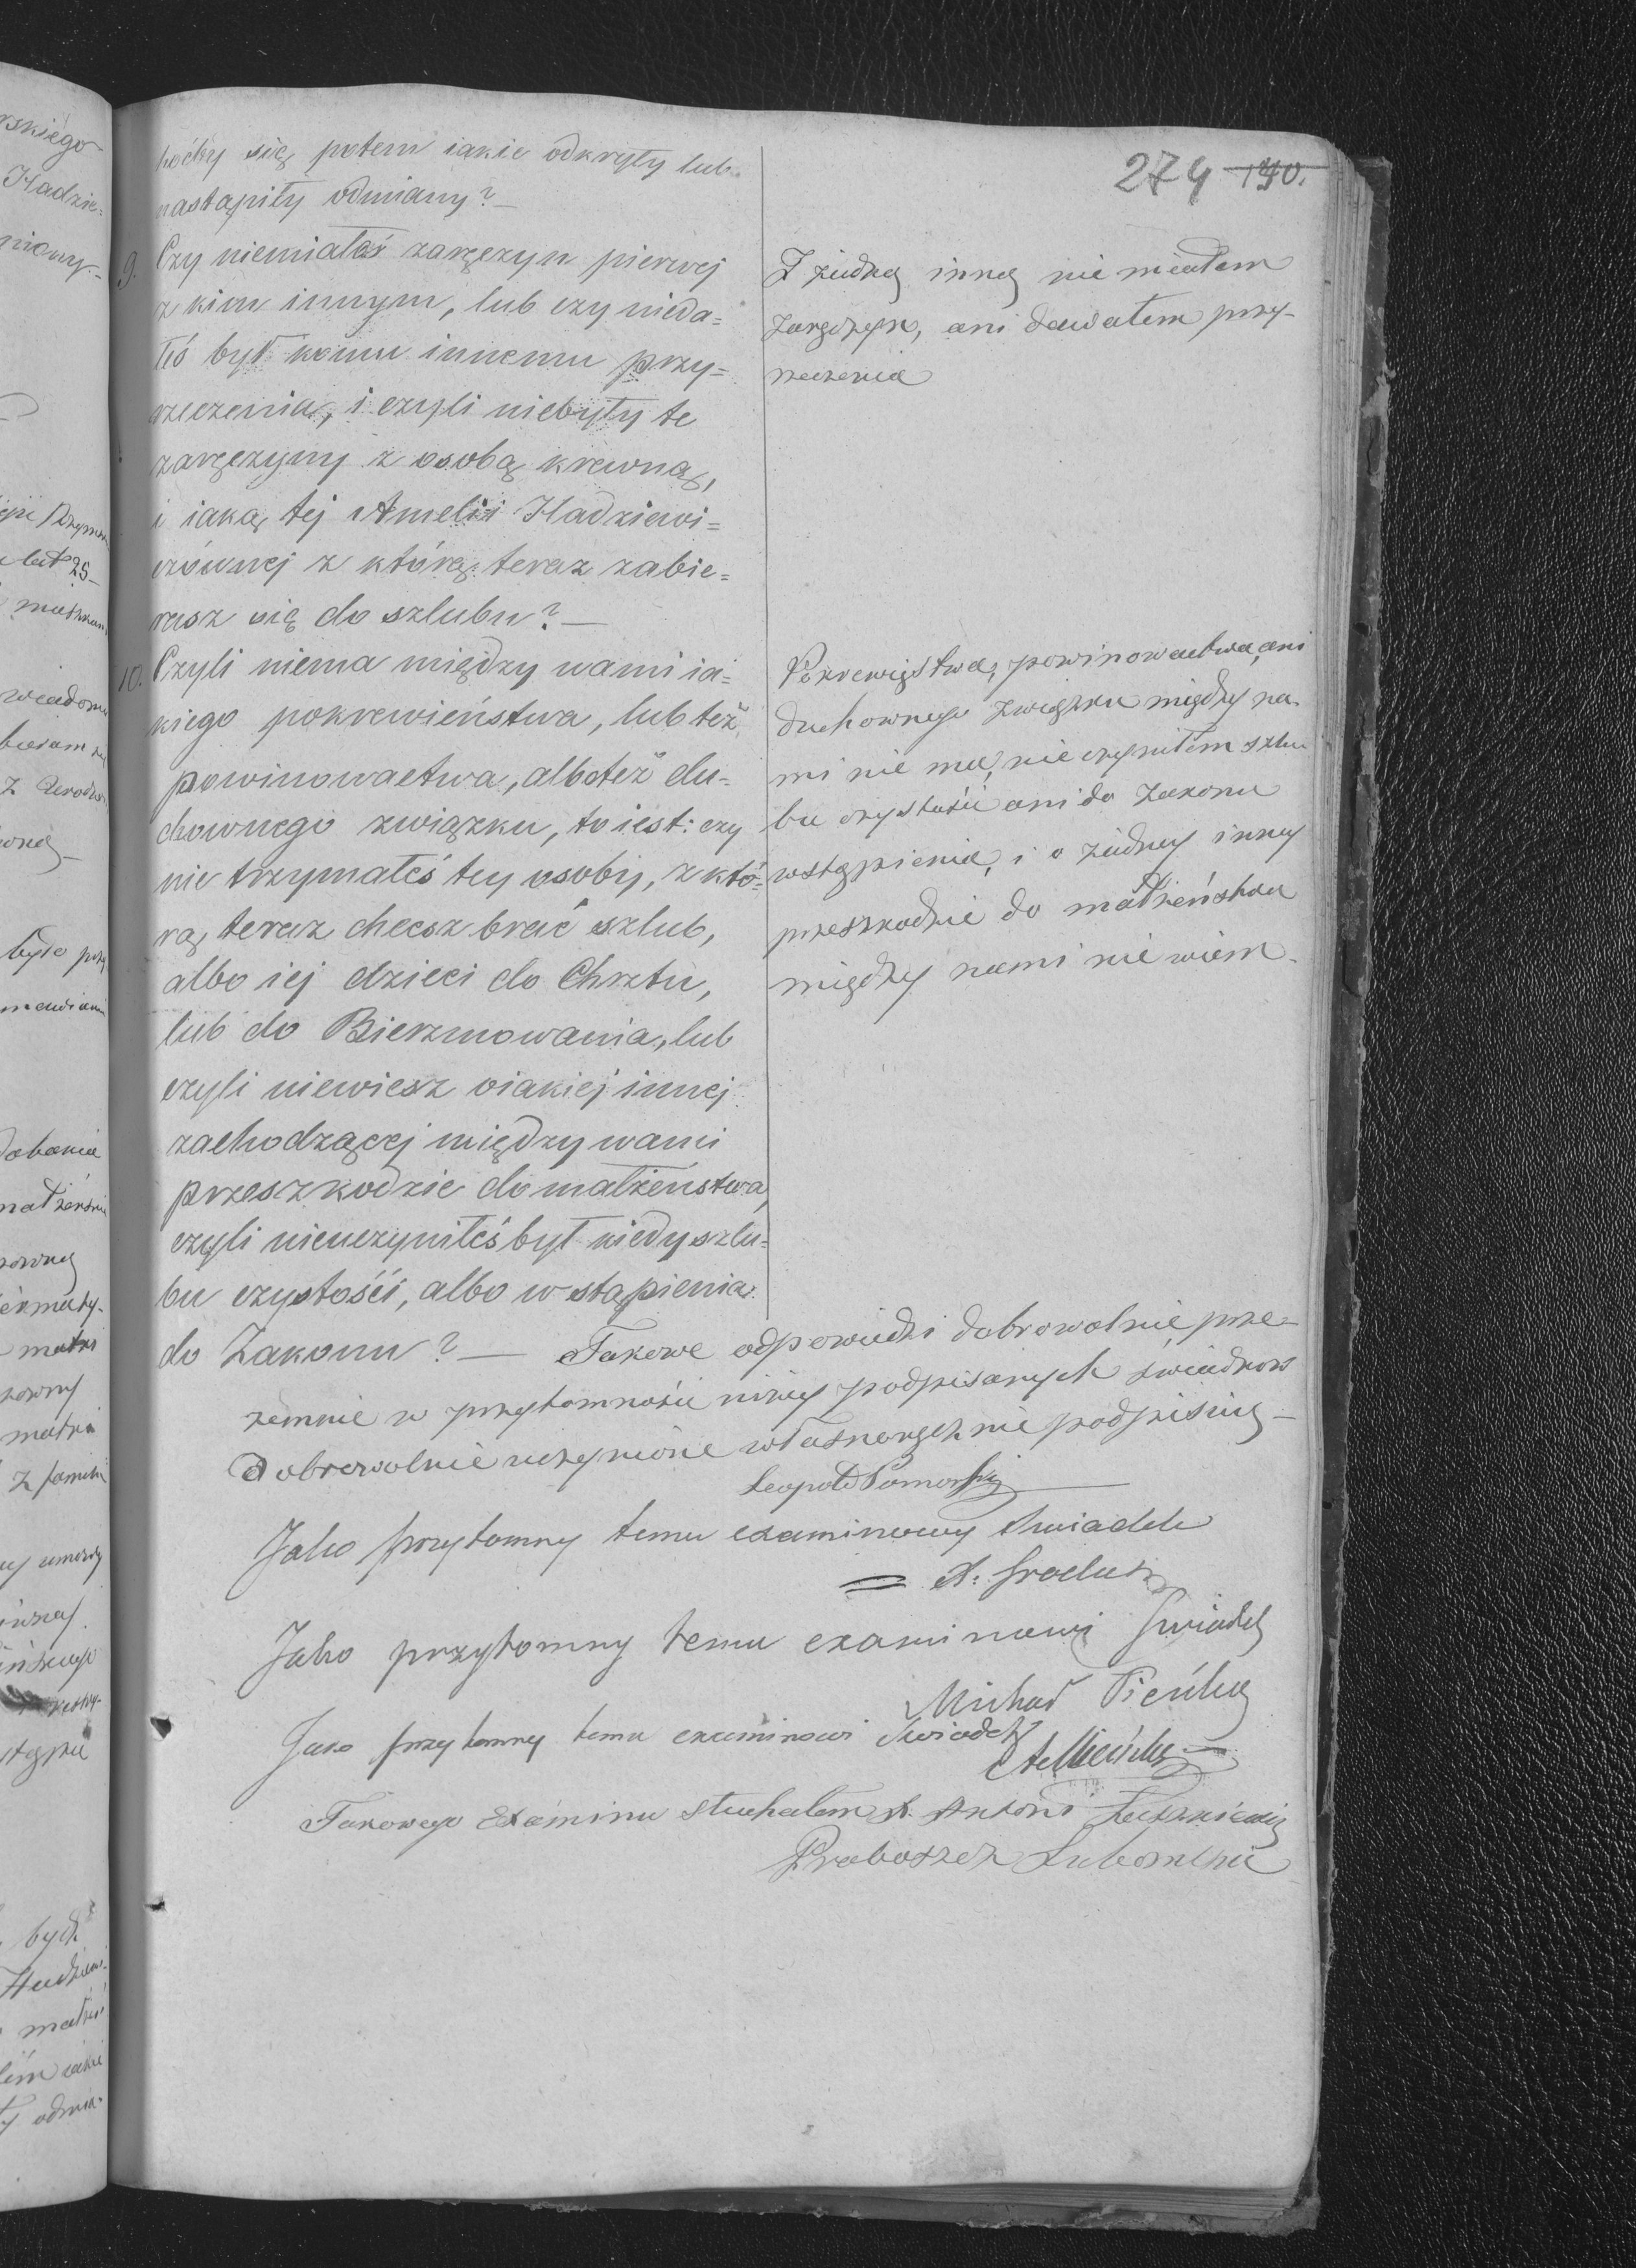 274 190.
hoćby się potem iakie odkryły lub
nastąpiły odmiany? —
9. Czy niemiałeś zaręczyn pierwej
z kim innym, lub czy nieda=
łeś był komu innemu przy=
rzeczenia, i czyli niebyły te
zaręczyny z osobą krewną,
i iaką tej Amelii Hadziewi=
czównej z którą teraz zabie=
rasz się do szlubu? —
Z żadną inną nie miałem
zaręczyn, ani dawałem przy-
rzeczenia
10. Czyli niema między wami ia=
kiego pokrewieństwa, lub też
powinowactwa, albo też du=
chownego związku, to iest: czy
nie trzymałeś tey osoby, z któ=
rą teraz chcesz brać szlub,
albo iej dzieci do Chrztu,
lub do Bierzmowania, lub
czyli niewiesz oiakiej innej
zachodzącej między wami
przeszkodzie do małżeństwa,
czyli nieuczyniłeś był kiedy szlu=
bu czystości, albo wstąpienia
do Zakonu? —
Pokrewięstwa, powinowactwa, ani
duchownego związku między na-
mi nie ma, nie czyniłem szlu
bu czystości ani do Zakonu
wstąpienia, i o żadney inney
przeszkodzie do małżeństwa
między nami nie wiem.
Takowe odpowiedzi dobrowolnie prze-
zemnie w przytomności niżey podpisanych świadków
dobrowolnie uczynione własnoręcznie podpisuię —
Leopold Pomorski
Jako przytomny temu examinowy Swiadek
Jako przytomny temu examinowi Swiadek
Michał Pieńko
Jako przytomny temu examinowi Swiadek
Takowego Examinu słuchałem X. Antoni
Proboszcz